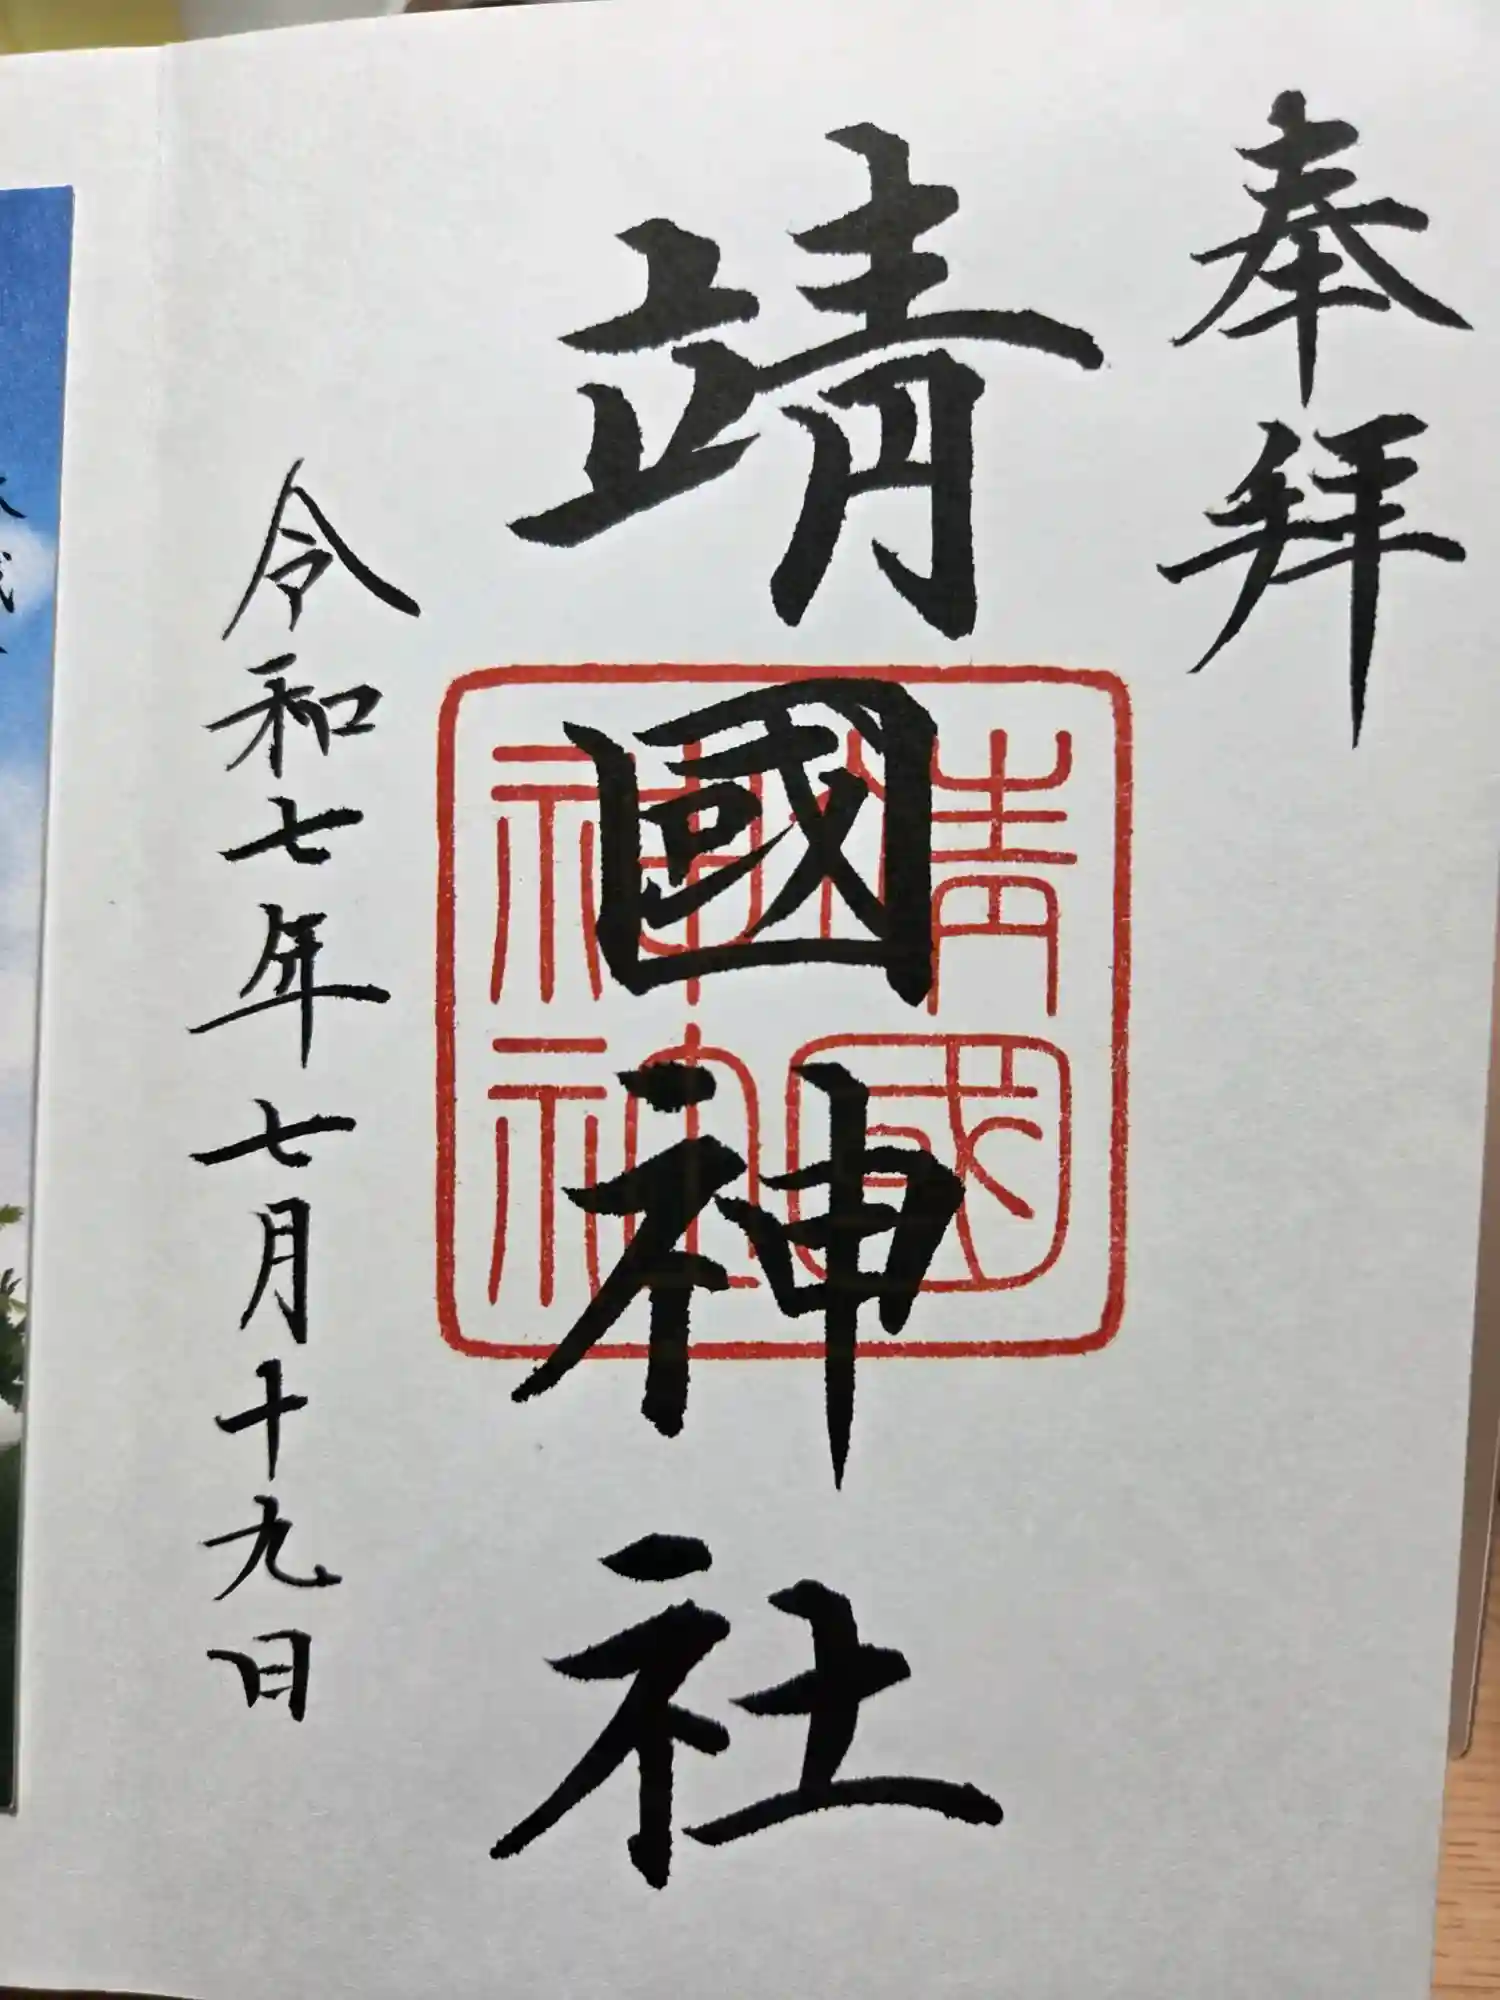 奉拝
靖國神社
靖國
神社
令和七年七月十九日